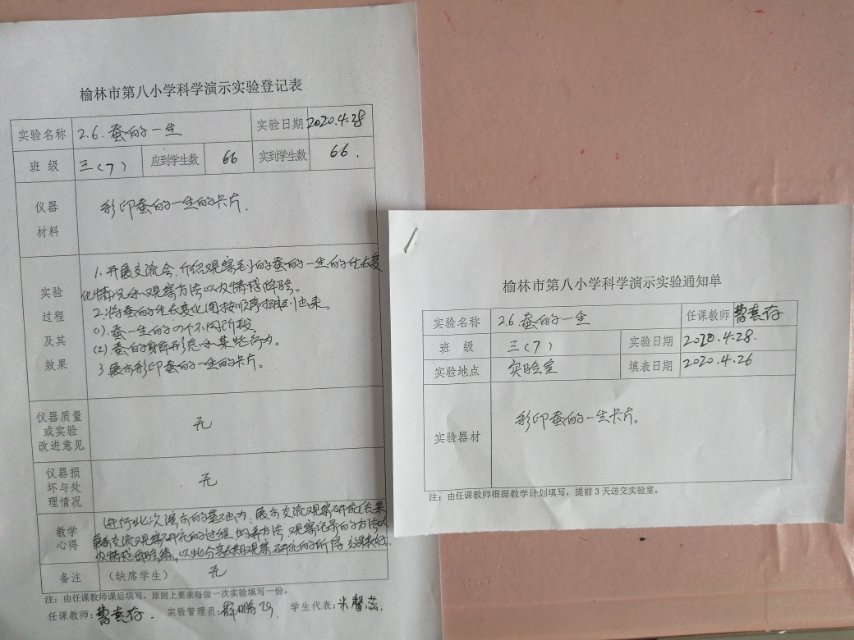 榆林市第八小学科学演示实验登记表
实验名称 2.6.蚕的一生 实验日期 2020.4.28
班 级 三(7) 应到学生数 66 实到学生数 66.
仪器材料 彩印蚕的一生的卡片.
实验过程及其效果
1.开展交流会,介绍观察到的蚕的一生的生长变
化情况和观察方法以及情感体验。
2.将蚕的生长变化图按顺序排列出来。
(1).蚕一生的4个不同阶段
(2).蚕的身体形态和某些行为。
3.展示彩印蚕的一生的卡片。
仪器质量或实验改进意见 无
仪器损坏与处理情况 无
教学心得
进行此次演示的基础内,展示交流观察研究成果
交流观察研究的过程,饲养方法,观察记录的方法以
及情感体验,以此分享长期观察研究的所得,效果好.
备注 (缺席学生) 无
注:由任课教师课后填写,原则上要求每做一次实验填写一份。
任课教师: 实验管理员: 学生代表:米馨蕊.
榆林市第八小学科学演示实验通知单
实验名称 2.6 蚕的一生 任课教师
班 级 三(7) 实验日期 2020.4.28.
实验地点 实验室 填表日期 2020.4.26
实验器材 彩印蚕的一生卡片。
注:由任课教师根据教学计划填写,提前3天送交实验室。